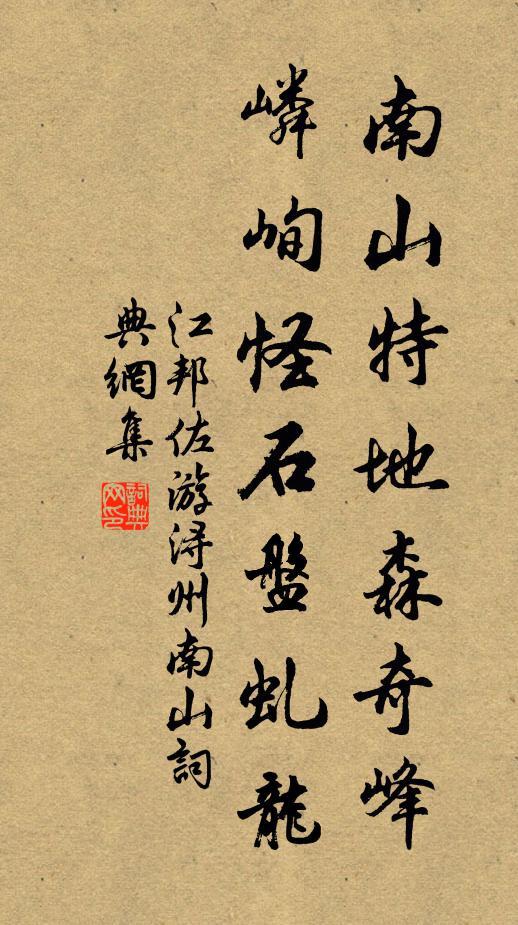 南山特地森奇峰
嶙峋怪石盤虬龍
江邦佐游潯州南山詞
典網集
詞典
网印